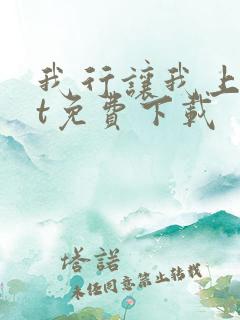 我行讓我上
t免費下載
塔諾
未經同意禁止轉載